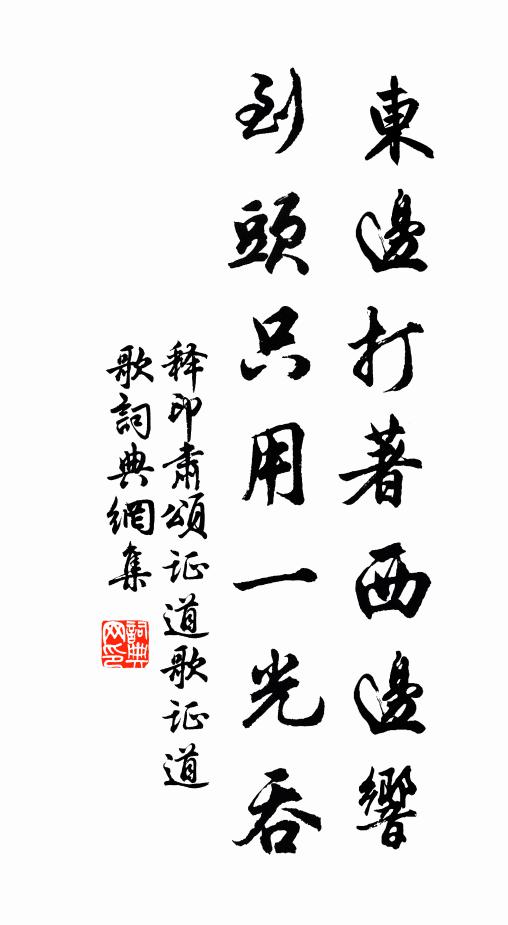 東邊打著西邊響
到頭只用一光吞
释印肅頌证道歌证道
歌詞典網集
詞典
网印